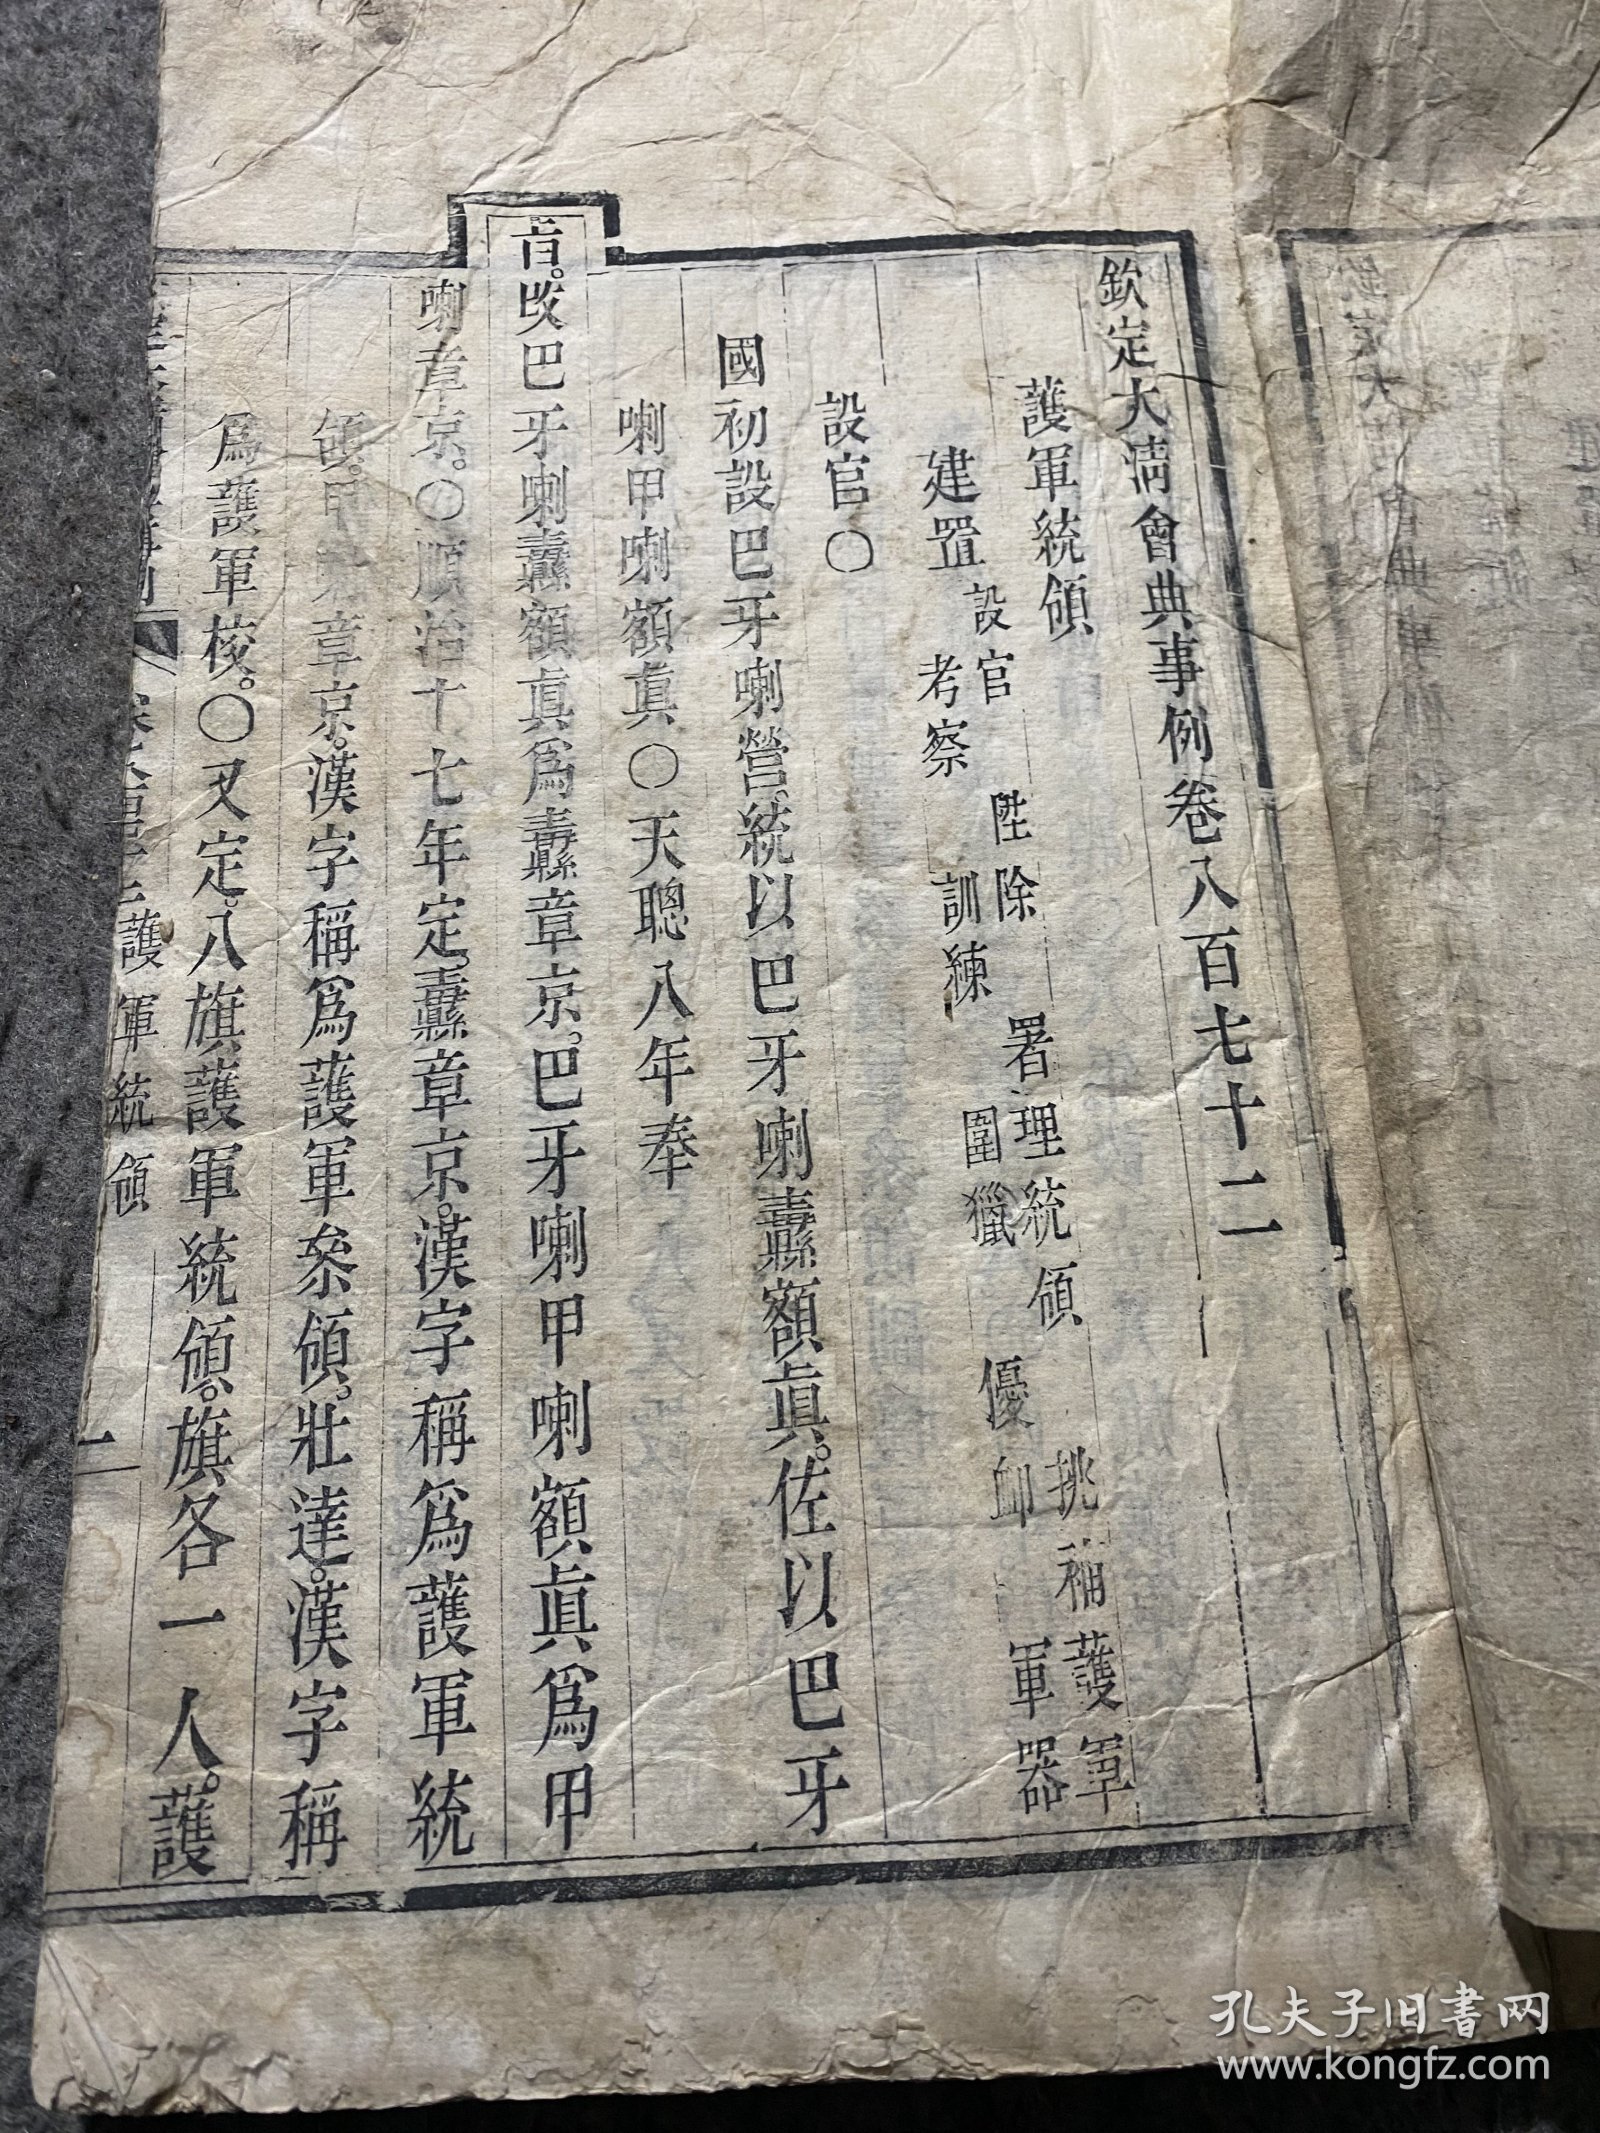 欽定大清會典事例卷八百七十二
護軍統領
建置 設官 考察 陞除 訓練 署理統領 圍獵 優卹 挑補護軍 軍器
設官〇
國初設巴牙喇營。統以巴牙喇纛額眞。佐以巴牙
喇甲喇額眞〇天聰八年奉
旨。改巴牙喇纛額眞爲纛章京。巴牙喇甲喇額眞爲甲
喇章京。〇順治十七年定。纛章京。漢字稱爲護軍統
領。甲喇章京。漢字稱爲護軍叅領。壯達。漢字稱
爲護軍校。〇又定。八旗護軍統領。旗各一人。護
護軍統領 二
孔夫子旧书网
www.kongfz.com